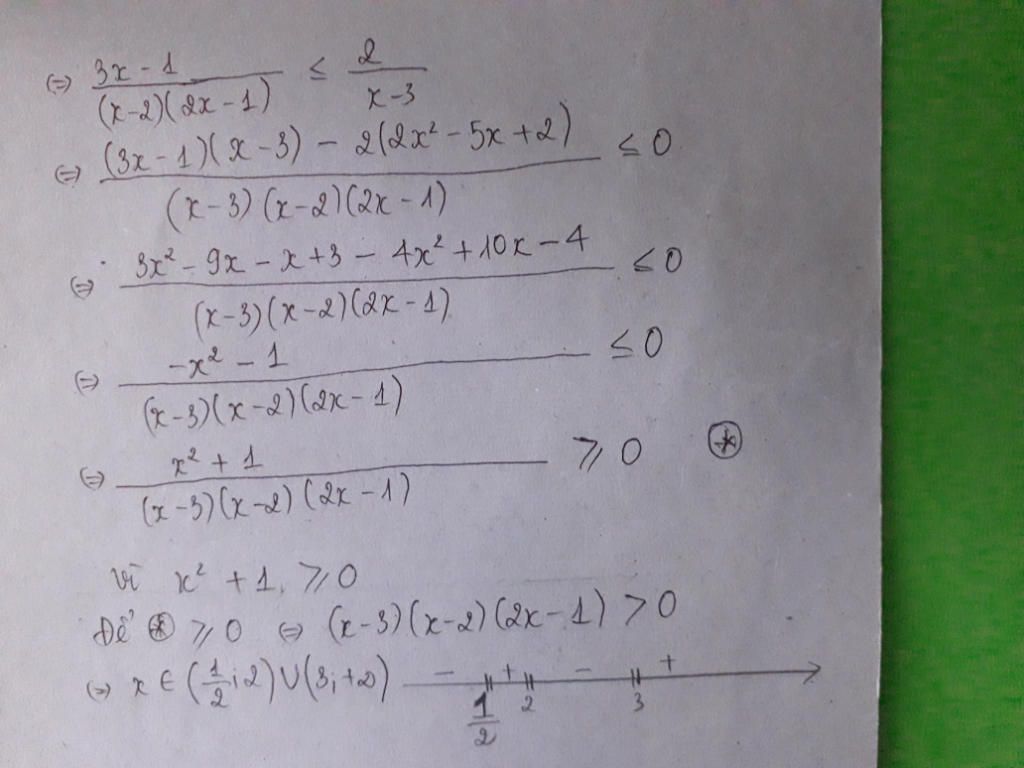 ⇔ (3x - 1)/((x-2)(2x-1)) ≤ 2/(x-3)
⇔ ((3x-1)(x-3) - 2(2x² - 5x + 2))/((x-3)(x-2)(2x-1)) ≤ 0
⇔ (3x² - 9x - x + 3 - 4x² + 10x - 4)/((x-3)(x-2)(2x-1)) ≤ 0
⇔ (-x² - 1)/((x-3)(x-2)(2x-1)) ≤ 0
⇔ (x² + 1)/((x-3)(x-2)(2x-1)) ⩾ 0 ⊛
Vì x² + 1 ⩾ 0
Để ⊛ ⩾ 0 ⇔ (x-3)(x-2)(2x-1) > 0
⇔ x ∈ (1/2; 2) ∪ (3; +∞) - + - +
1/2 2 3